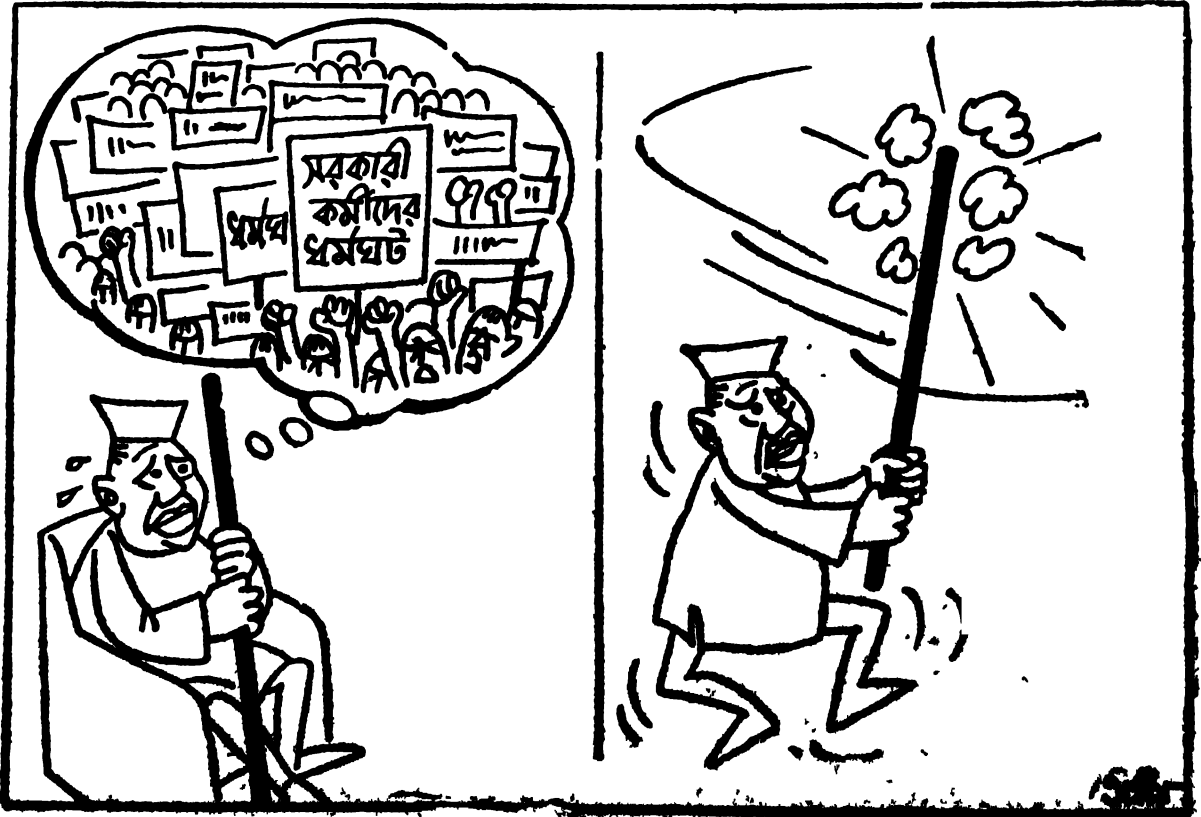 ধর্মঘ
সরকারী
কর্মীদের
ধর্মঘট